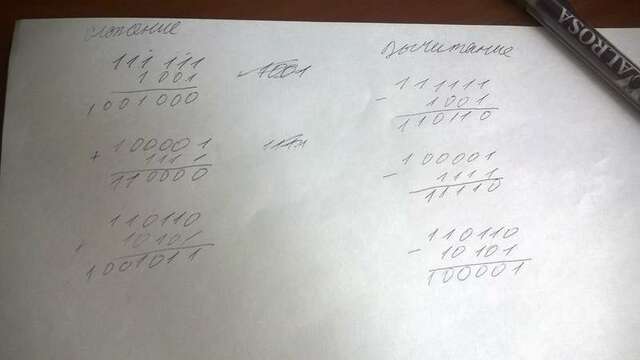 сложение
111 111
1 001
1001000
1001
+ 100001
1111
110000
+ 110110
10101
1001011
Вычитание
111111
- 1001
110110
100001
- 1111
11110
110110
- 10101
100001
ALROSA